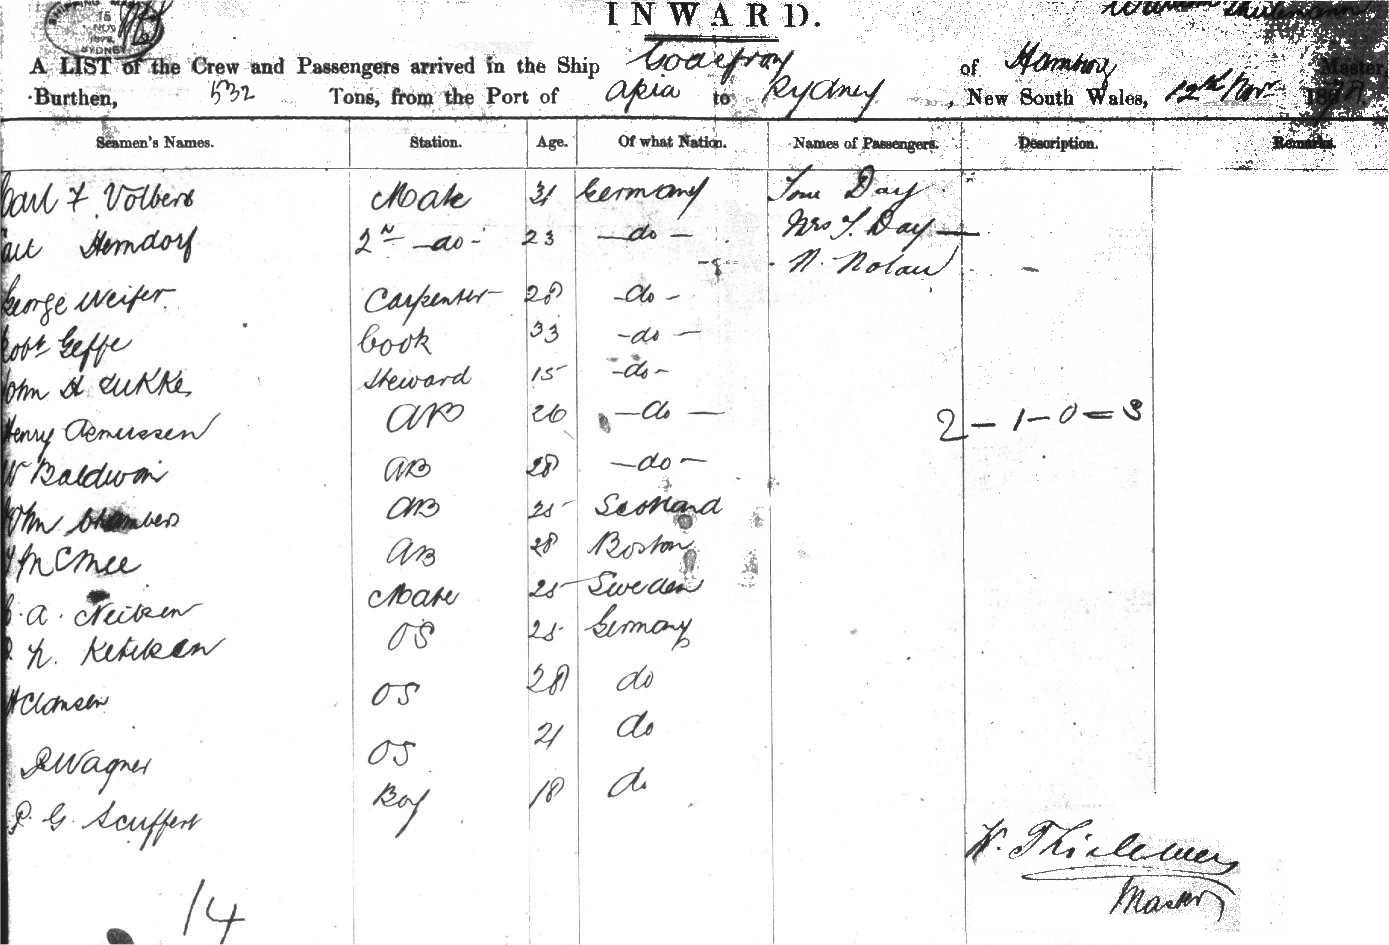 SHIPPING
15
NOV
SYDNEY
INWARD.
A LIST of the Crew and Passengers arrived in the Ship Godefroy of Hamburg Master
Burthen, 532 Tons, from the Port of Apia to Sydney, New South Wales, 12th Nov 187
Seamen's Names. Station. Age. Of what Nation. Names of Passengers. Description. Remarks.
Carl F. Volbers Mate 31 Germany Tom Day
Herndorf 2nd -do- 23 -do- Mrs T. Day
N. Nolan
George Weifer Carpenter 28 -do-
Robt Geffe Cook 33 -do-
John H LUKKe Steward 15 -do-
Henry Asmussen AB 26 -do-
W Baldwin AB 28 -do- 2-1-0=3
John Chambers AB 25 Scotland
McMee AB 28 Boston
A. Neilsen Mate 25 Sweden
N. Ketelsen OS 25 Germany
H Clausen OS 28 do
Wagner OS 21 do
P. G. Scuffert Boy 18 do
W. Thielemann
Master
14